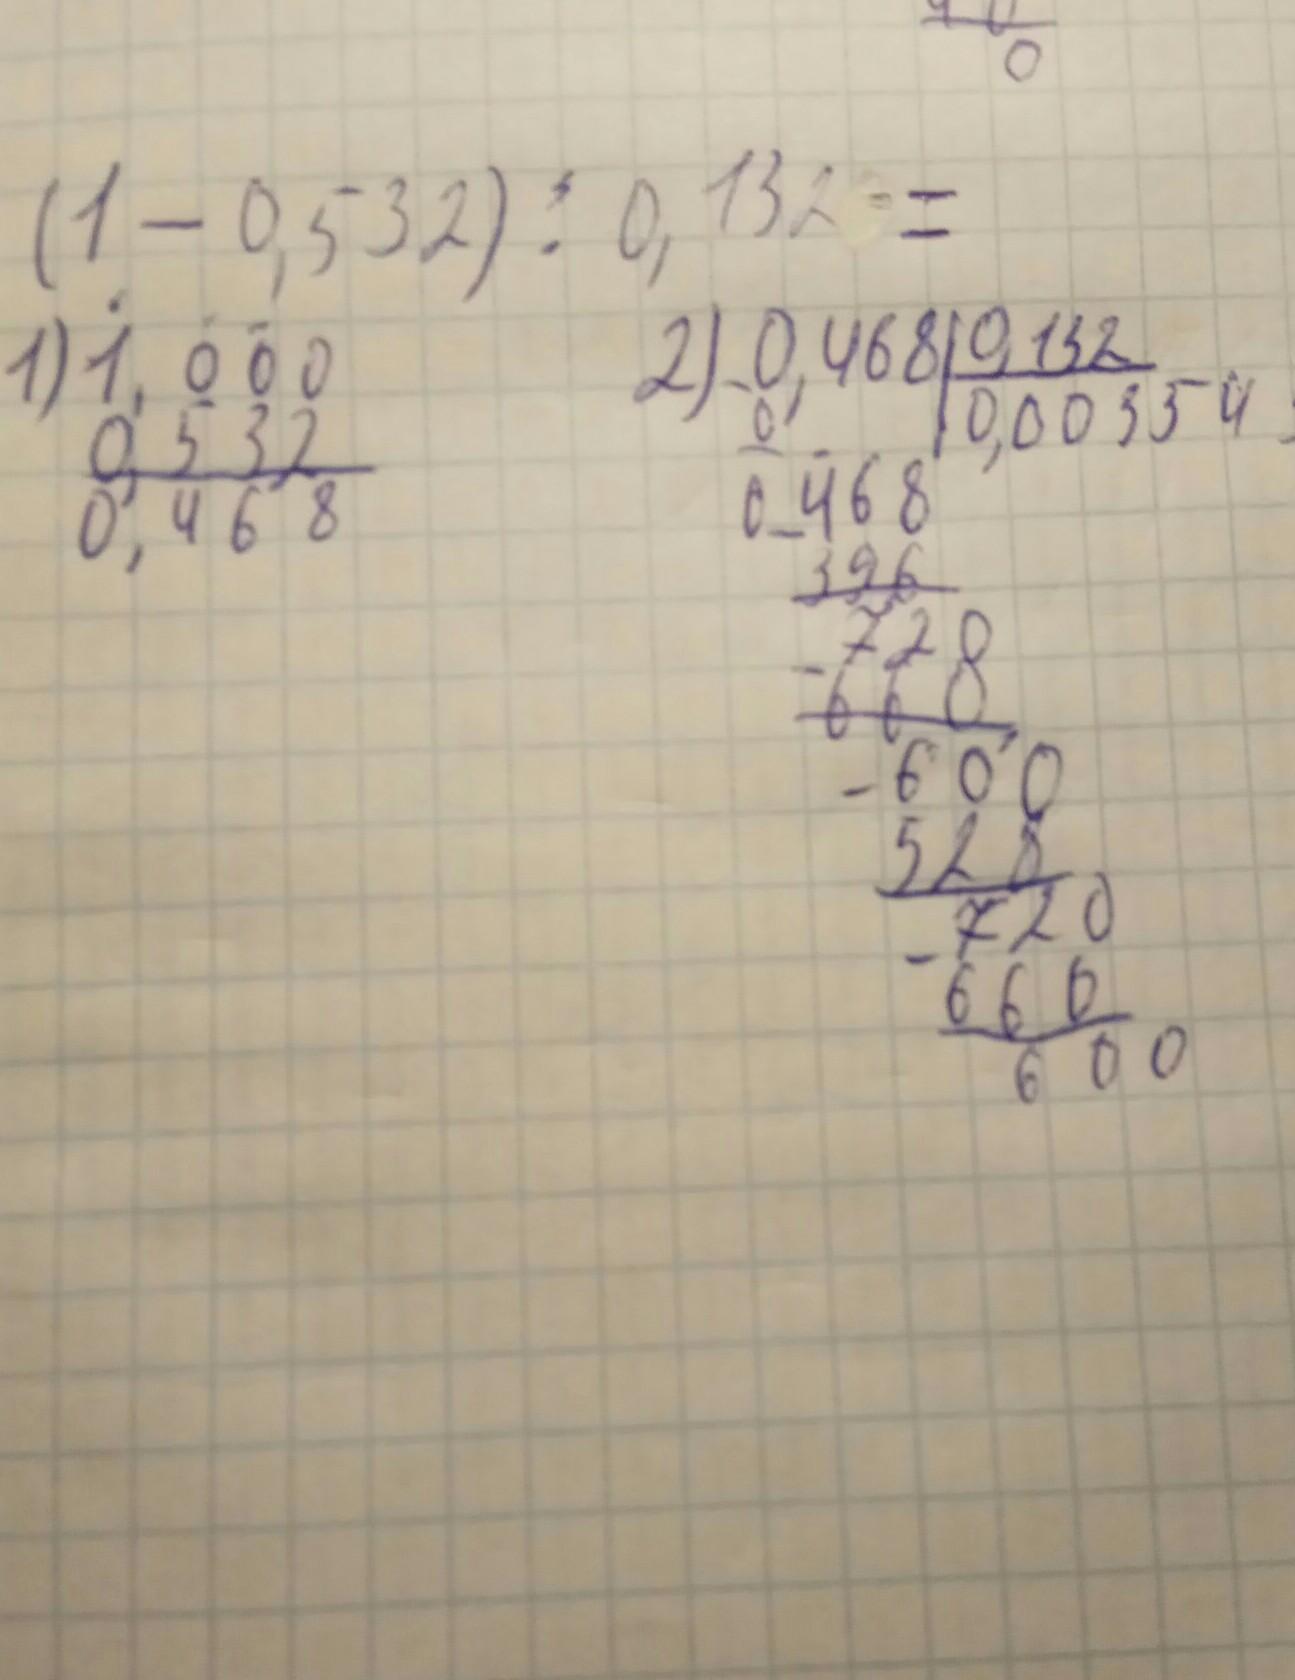 0
(1 - 0,532) : 0,132 =
1) 1,000
0,532
0,468
2) 0,468 | 0,132
0 0,003354
0 468
396
720
660
600
528
720
660
600